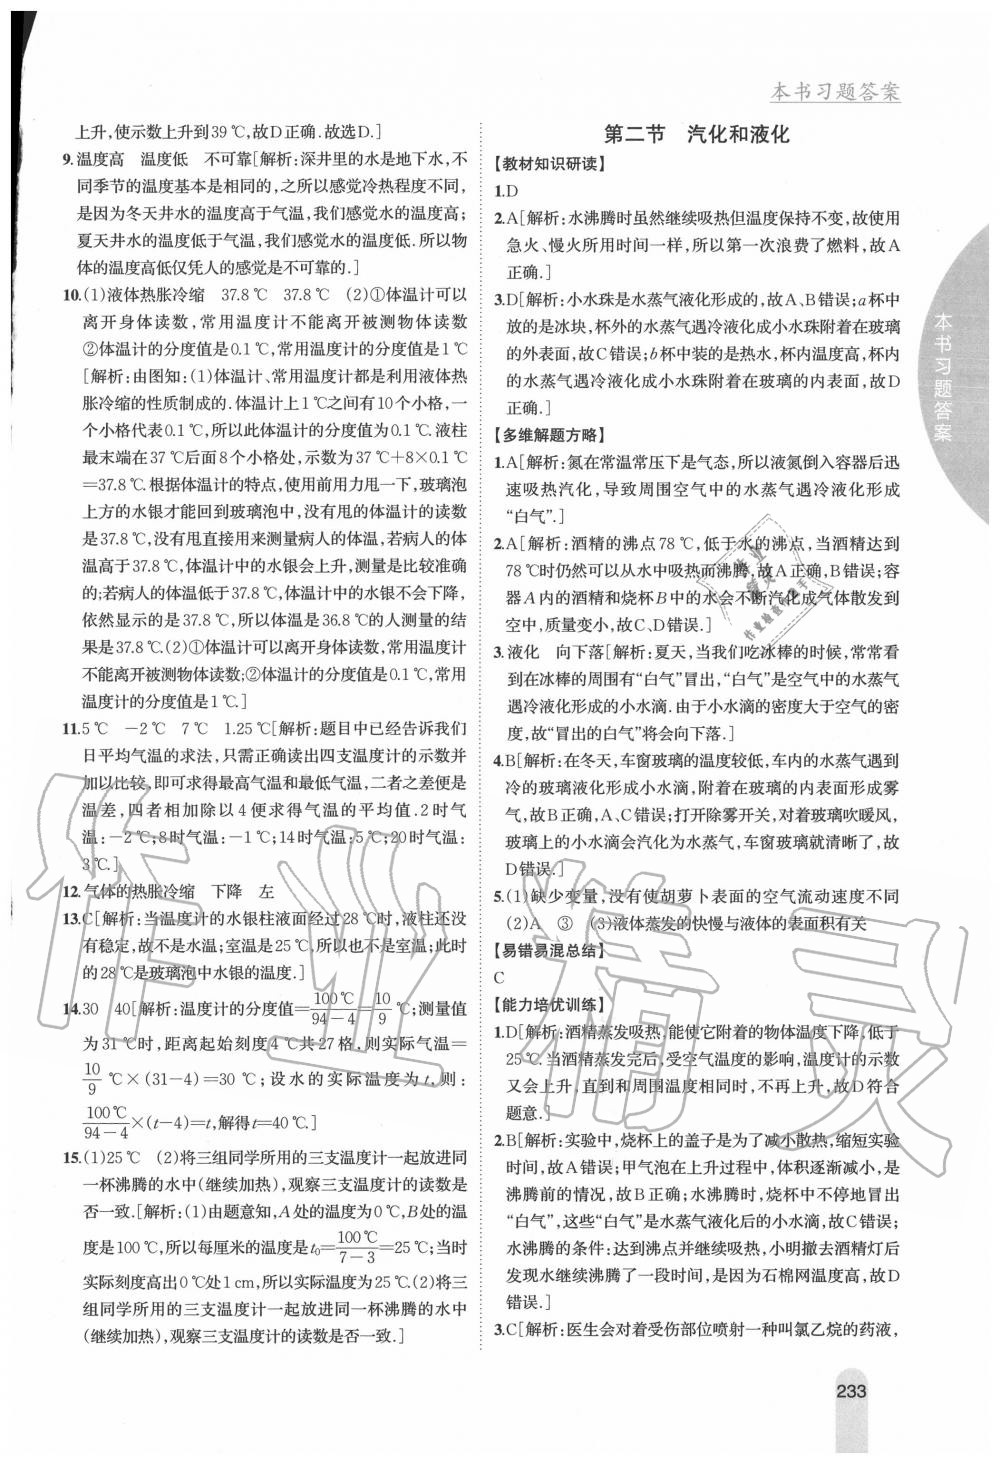 本书习题答案
上升,使示数上升到39 ℃,故D正确.故选D.]
9.温度高　温度低　不可靠[解析:深井里的水是地下水,不
同季节的温度基本是相同的,之所以感觉冷热程度不同,
是因为冬天井水的温度高于气温,我们感觉水的温度高;
夏天井水的温度低于气温,我们感觉水的温度低.所以物
体的温度高低仅凭人的感觉是不可靠的.]
10.(1)液体热胀冷缩　37.8 ℃　37.8 ℃　(2)①体温计可以
离开身体读数,常用温度计不能离开被测物体读数
②体温计的分度值是0.1 ℃,常用温度计的分度值是1 ℃
[解析:由图知:(1)体温计、常用温度计都是利用液体热
胀冷缩的性质制成的.体温计上1 ℃之间有10个小格,一
个小格代表0.1 ℃,所以此体温计的分度值为0.1 ℃.液柱
最末端在37 ℃后面8个小格处,示数为37 ℃+8×0.1 ℃
=37.8 ℃.根据体温计的特点,使用前用力甩一下,玻璃泡
上方的水银才能回到玻璃泡中,没有甩的体温计的读数
是37.8 ℃,没有甩直接用来测量病人的体温,若病人的体
温高于37.8 ℃,体温计中的水银会上升,测量是比较准确
的;若病人的体温低于37.8 ℃,体温计中的水银不会下降,
依然显示的是37.8 ℃,所以体温是36.8 ℃的人测量的结
果是37.8 ℃.(2)①体温计可以离开身体读数,常用温度计
不能离开被测物体读数;②体温计的分度值是0.1 ℃,常用
温度计的分度值是1 ℃.]
11.5 ℃　-2 ℃　7 ℃　1.25 ℃[解析:题目中已经告诉我们
日平均气温的求法,只需正确读出四支温度计的示数并
加以比较,即可求得最高气温和最低气温,二者之差便是
温差,四者相加除以4便求得气温的平均值.2时气
温:-2 ℃;8时气温:-1 ℃;14时气温:5 ℃;20时气温:
3 ℃.]
12.气体的热胀冷缩　下降　左
13.C[解析:当温度计的水银柱液面经过28 ℃时,液柱还没
有稳定,故不是水温;室温是25 ℃,所以也不是室温;此时
的28 ℃是玻璃泡中水银的温度.]
14.30　40[解析:温度计的分度值=100℃/(94-4)=10/9 ℃;测量值
为31 ℃时,距离起始刻度4 ℃共27格,则实际气温=
10/9 ℃×(31-4)=30 ℃;设水的实际温度为t,则:
100℃/(94-4)×(t-4)=t,解得t=40 ℃.]
15.(1)25 ℃　(2)将三组同学所用的三支温度计一起放进同
一杯沸腾的水中(继续加热),观察三支温度计的读数是
否一致.[解析:(1)由题意知,A处的温度为0 ℃,B处的温
度是100 ℃,所以每厘米的温度是t₀=100℃/(7-3)=25 ℃;当时
实际刻度高出0 ℃处1 cm,所以实际温度为25 ℃.(2)将三
组同学所用的三支温度计一起放进同一杯沸腾的水中
(继续加热),观察三支温度计的读数是否一致.]
第二节　汽化和液化
【教材知识研读】
1.D
2.A[解析:水沸腾时虽然继续吸热但温度保持不变,故使用
急火、慢火所用时间一样,所以第一次浪费了燃料,故A
正确.]
3.D[解析:小水珠是水蒸气液化形成的,故A、B错误;a杯中
放的是冰块,杯外的水蒸气遇冷液化成小水珠附着在玻璃
的外表面,故C错误;b杯中装的是热水,杯内温度高,杯内
的水蒸气遇冷液化成小水珠附着在玻璃的内表面,故D
正确.]
【多维解题方略】
1.A[解析:氮在常温常压下是气态,所以液氮倒入容器后迅
速吸热汽化,导致周围空气中的水蒸气遇冷液化形成
“白气”.]
2.A[解析:酒精的沸点78 ℃,低于水的沸点,当酒精达到
78 ℃时仍然可以从水中吸热而沸腾,故A正确,B错误;容
器A内的酒精和烧杯B中的水会不断汽化成气体散发到
空中,质量变小,故C、D错误.]
3.液化　向下落[解析:夏天,当我们吃冰棒的时候,常常看
到在冰棒的周围有“白气”冒出,“白气”是空气中的水蒸气
遇冷液化形成的小水滴.由于小水滴的密度大于空气的密
度,故“冒出的白气”将会向下落.]
4.B[解析:在冬天,车窗玻璃的温度较低,车内的水蒸气遇到
冷的玻璃液化形成小水滴,附着在玻璃的内表面形成雾
气,故B正确,A、C错误;打开除雾开关,对着玻璃吹暖风,
玻璃上的小水滴会汽化为水蒸气,车窗玻璃就清晰了,故
D错误.]
5.(1)缺少变量,没有使胡萝卜表面的空气流动速度不同
(2)A　③　(3)液体蒸发的快慢与液体的表面积有关
【易错易混总结】
C
【能力培优训练】
1.D[解析:酒精蒸发吸热,能使它附着的物体温度下降,低于
25 ℃.当酒精蒸发完后,受空气温度的影响,温度计的示数
又会上升,直到和周围温度相同,不再上升,故D符合
题意.]
2.B[解析:实验中,烧杯上的盖子是为了减小散热,缩短实验
时间,故A错误;甲气泡在上升过程中,体积逐渐减小,是
沸腾前的情况,故B正确;水沸腾时,烧杯中不停地冒出
“白气”,这些“白气”是水蒸气液化后的小水滴,故C错误;
水沸腾的条件:达到沸点并继续吸热,小明撤去酒精灯后
发现水继续沸腾了一段时间,是因为石棉网温度高,故
D错误.]
3.C[解析:医生会对着受伤部位喷射一种叫氯乙烷的药液,
本书习题答案
233
作业精灵